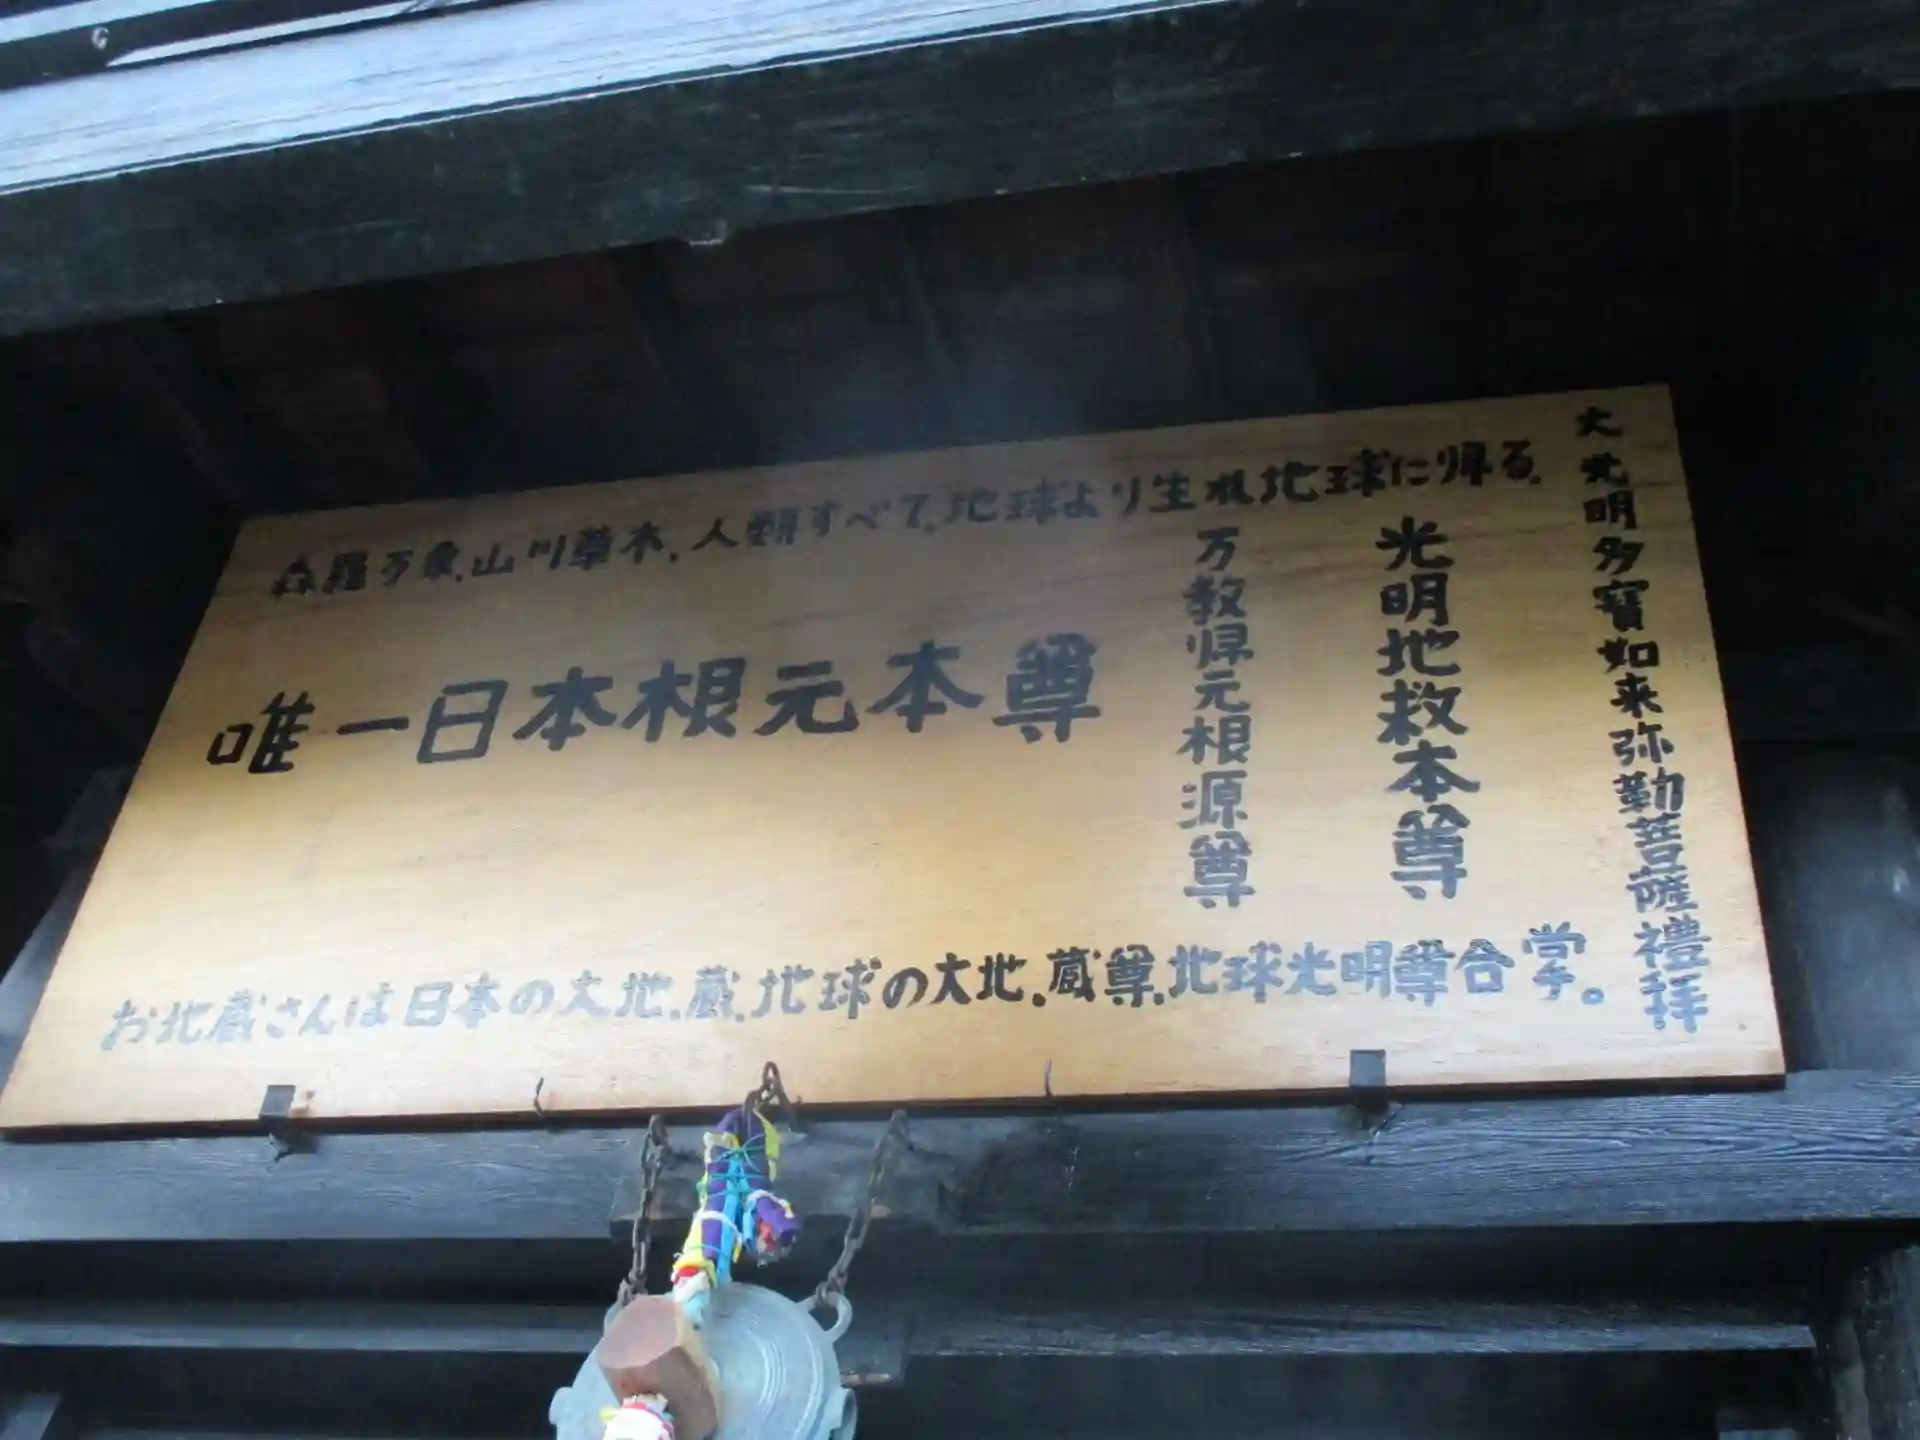 森羅万象.山川草木.人類すべて.地球より生れ地球に帰る.
大光明多寶如来弥勒菩薩禮拜
光明地救本尊
万教帰元根源尊
唯一日本根元本尊
お地蔵さんは日本の大地.蔵.地球の大地.蔵尊.地球光明尊合掌。